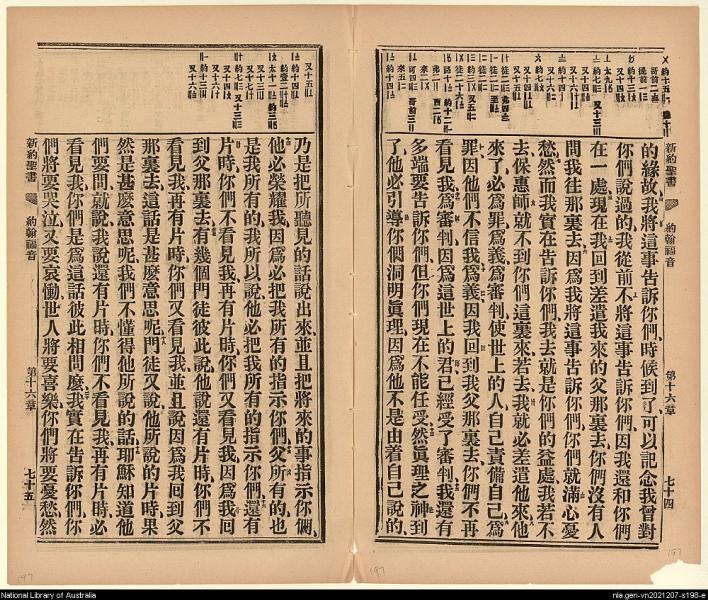 的緣故我將這事告訴你們時候到了可以記念我曾對
你們說過的我從前不將這事告訴你們因我還和你們
在一處現在我回到差遣我來的父那裏去你們沒有人
問我往那裏去因爲我將這事告訴你們你們就滿心憂
愁然而我實在告訴你們我去就是你們的益處我若不
去保惠師就不到你們這裏來若去我就必差遣他來他
來了必爲罪爲義爲審判使世上的人自己責備自己爲
罪因他們不信我爲義因我回到我父那裏去你們不再
看見我爲審判因爲這世上的君已經受了審判我還有
多端要告訴你們但你們現在不能任受然眞理之神到
了他必引導你們洞明眞理因爲他不是由着自己說的
新約聖書 約翰福音 第十六章 七十四
乃是把所聽見的話說出來並且把將來的事指示你們
他必榮耀我因爲必把我所有的指示你們父所有的也
是我所有的我所以說他必把我所有的指示你們還有
片時你們不看見我再有片時你們又看見我因爲我回
到父那裏去有幾個門徒彼此說他說還有片時你們不
看見我再有片時你們又看見我並且說因爲我回到父
那裏去這話是甚麼意思呢門徒又說他所說的片時果
然是甚麼意思呢我們不懂得他所說的話耶穌知道他
們要問就說我說還有片時你們不看見我再有片時必
看見我你們是爲這話彼此相問麼我實在告訴你們你
們將要哭泣又要哀慟世人將要喜樂你們將要憂愁然
新約聖書 約翰福音 第十六章 七十五
197
197
197
National Library of Australia
nla.gen-vn2021207-s198-e